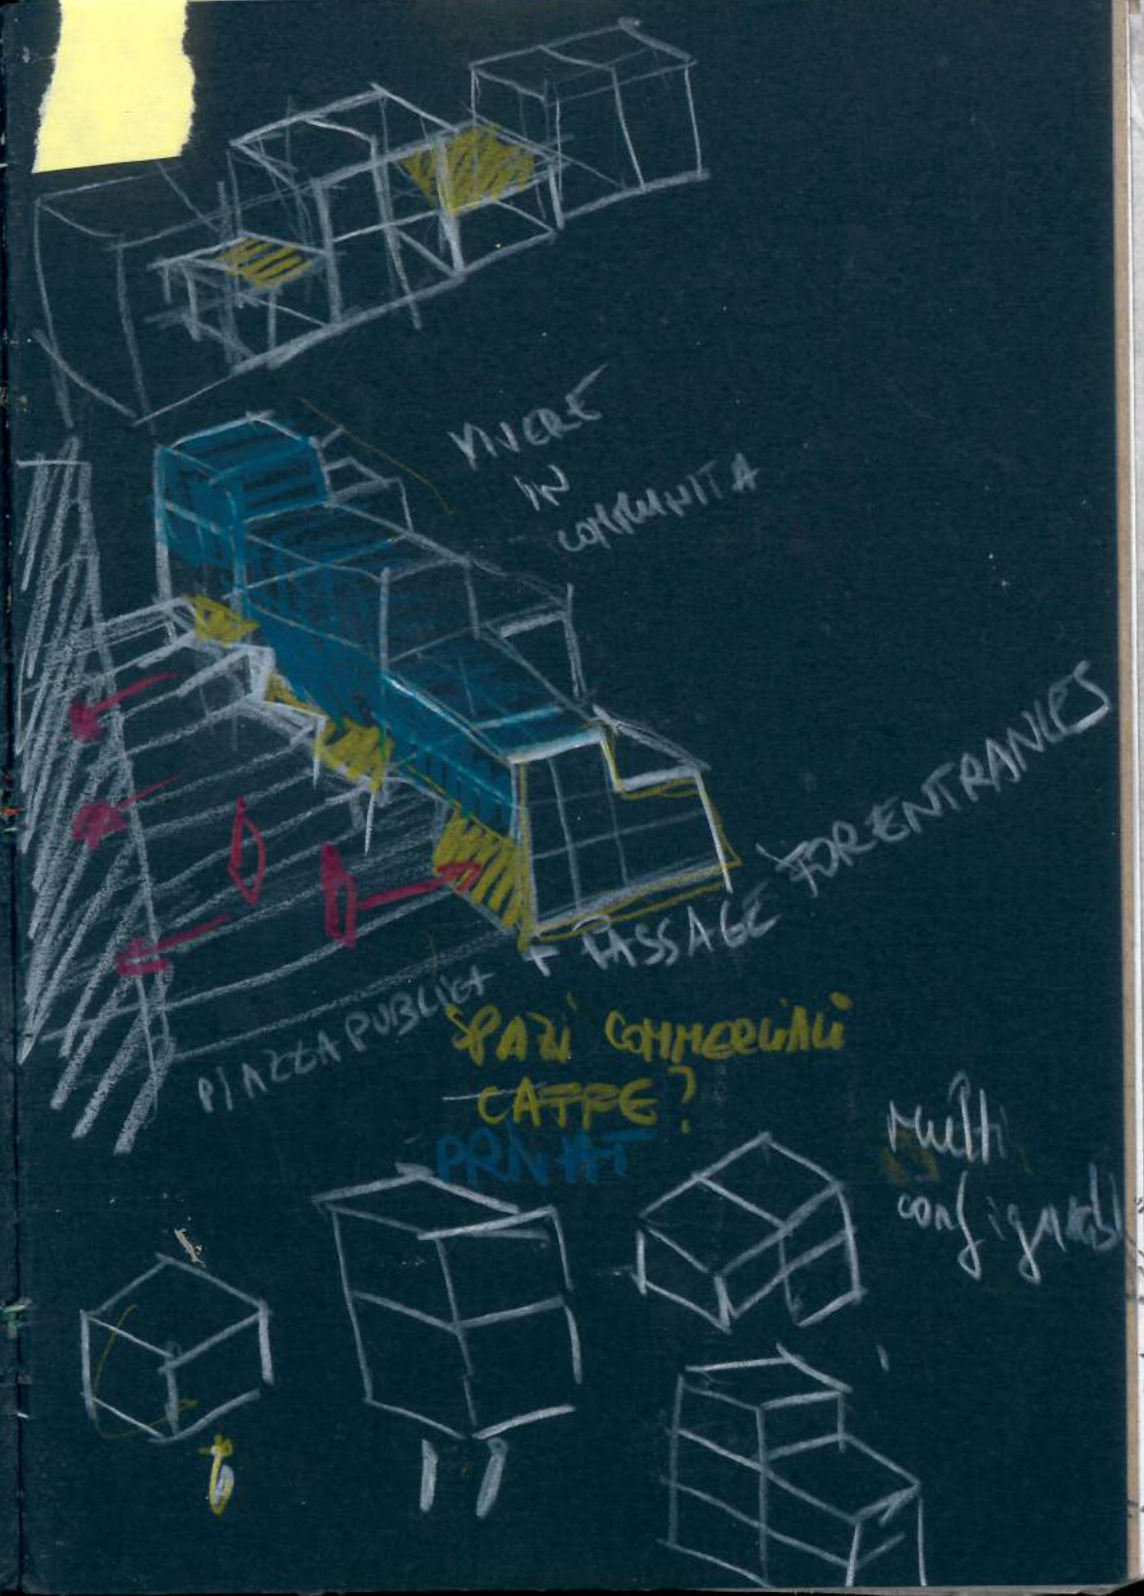 VIVERE
IN
COMMUNITA
PIAZZA PUBLICA + PASSAGE FOR ENTRANCES
SPAZI COMMERCIALI
CAFFE?
PRIVAT
Multi